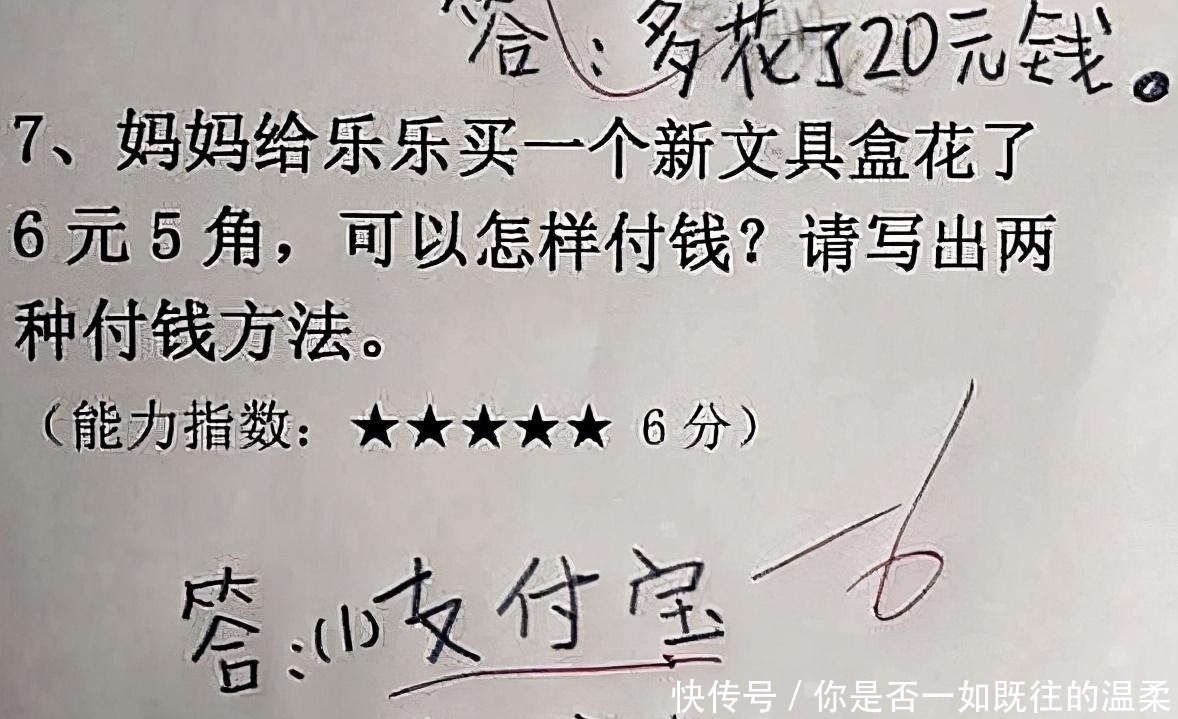 答：多花了20元钱。
7、妈妈给乐乐买一个新文具盒花了
6元5角，可以怎样付钱？请写出两
种付钱方法。
（能力指数：★★★★★ 6分）
-6
答：(1)支付宝
快传号 / 你是否一如既往的温柔